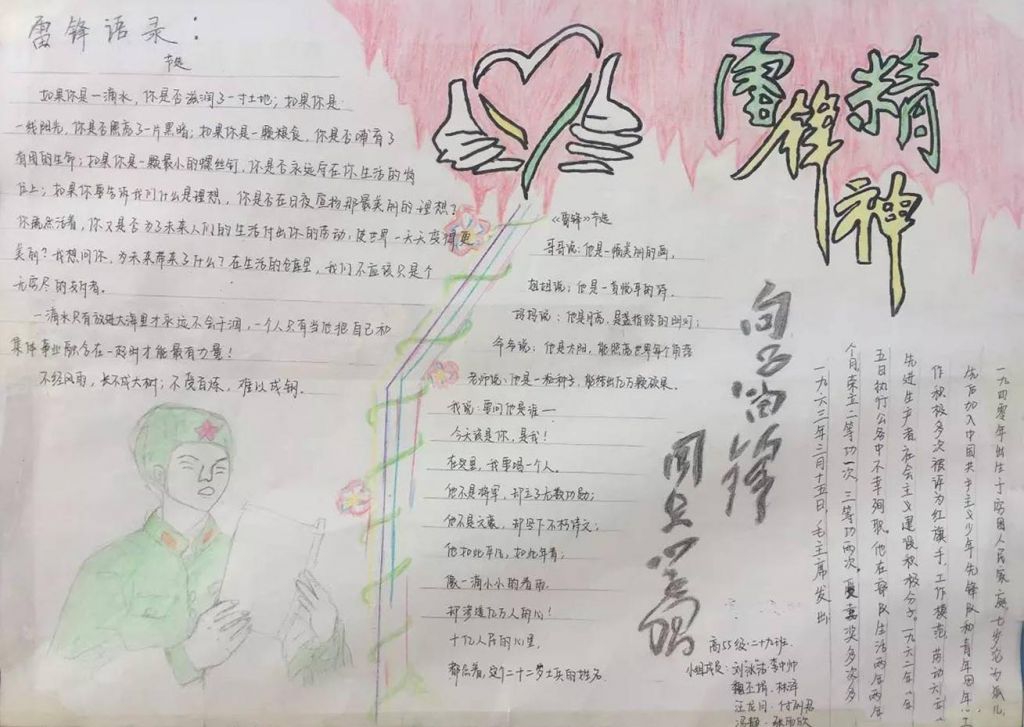 雷锋语录：
节选
如果你是一滴水，你是否滋润了一寸土地；如果你是
一线阳光，你是否照亮了一片黑暗；如果你是一颗粮食，你是否哺育了
有用的生命；如果你是一颗最小的螺丝钉，你是否永远守在你生活的岗
位上；如果你要告诉我们什么是理想，你是否在日夜宣扬那最美丽的理想？
你既然活着，你又是否为了未来人们的生活付出你的劳动，使世界一天天变得更
美丽？我想问你，为未来带来了什么？在生活的仓库里，我们不应该只是个
无穷尽的支付者。
一滴水只有放进大海里才永远不会干涸，一个人只有当他把自己和
集体事业融合在一起时才能最有力量！
不经风雨，长不成大树；不受百炼，难以成钢。
雷锋精神
《雷锋》节选
哥哥说：他是一幅美丽的画，
姐姐说：他是一首悦耳的诗，
妈妈说：他是月亮，是盏指路的明灯；
爷爷说：他是太阳，能照亮世界每个角落
老师说：他是一粒种子，能播出亿万颗硕果。
我说：要问他是谁——
今天该是你，是我！
在这里，我要唱一个人。
他不是将军，却立了无数功勋；
他不是文豪，却写下不朽诗文；
他如此平凡，如此年青；
像一滴小小的春雨，
却渗透亿万人的心！
十亿人民的心里，
都念着，这个二十二岁士兵的姓名
向雷锋
同志学习
一九四零年出生于穷困人民家庭，七岁沦为孤儿
先后加入中国共产主义少年先锋队和青年团年
作积极多次被评为红旗手，工作模范，劳动
先进生产者，社会主义建设积极分子。一九六二年八月
五日执行公务中不幸殉职。他在部队生活两年两
个月荣立二等功一次，三等功两次，嘉奖多次
一九六三年三月十五日，毛主席发出
高55级·二十九班
小组成员：刘泳洁 李中帅
林泽
汪龙问·付刚君
冯静·张雨欣